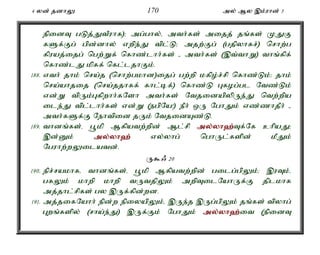 4 லன் தனாலு 170 அல் ஆல இம்ரான் 3
நினைவு படுத்துவீராக); அப்பால், அவர்கள் அதைத் தங்கள் முதுகு
களுக்குப் பின்னால் எறிந்து விட்டு; அதற்குப் (பதிலாகச்) சொற்ப
கிரயத்தைப் பெற்றுக் கொண்டார்கள் - அவர்கள் (இவ்வாறு) வாங்கிக்
கொண்டது மிகக் கெட்டதாகும்.
188. எவர் தாம் செய்த (சொற்பமான)தைப் பற்றி மகிழ்ச்சி கொண்டும்; தாம்
செய்யாததை (செய்ததாகக் காட்டிக்) கொண்டு புகழப்பட வேண்டும்
என்று விரும்புகிறார்களோ அவர்கள் வேதனையிலிருந்து வெற்றிய
டைந்து விட்டார்கள் என்று (நபியே!) நீர் ஒரு போதும் எண்ணாதீர் -
அவர்களுக்கு நோவினை தரும் வேதனையுண்டு.
189. வானங்கள், பூமி ஆகியவற்றின் ஆட்சி அல்லாஹ்வுக்கே உரியது;
இன்னும் அல்லாஹ் எல்லாப் பொருட்களின் மீதும்
பேராற்றலுடையவன்.
ருகூஃ 20
190. நிச்சயமாக, வானங்கள், பூமி ஆகியவற்றின் படைப்பிலும்; இரவும்,
பகலும் மாறி மாறி வருவதிலும் அறிவுடையோருக்கு திடமாக
அத்தாட்சிகள் பல இருக்கின்றன.
191. அத்தகையோர் நின்ற நிலையிலும், இருந்த இருப்பிலும் தங்கள் விலாப்
புறங்களில் (சாய்ந்து) இருக்கும் போதும் அல்லாஹ்வை (நினைவு